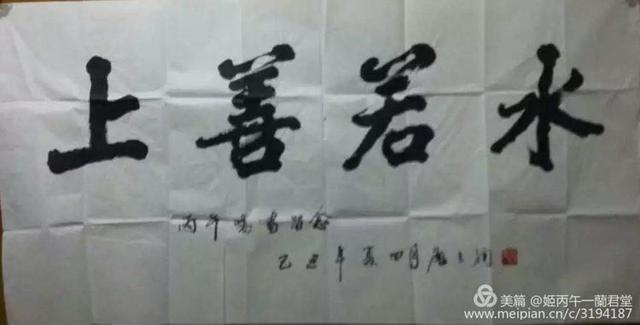 上善若水
丙午
乙丑年夏四月
美篇 @姬丙午一蘭君堂
www.meipian.cn/c/3194187